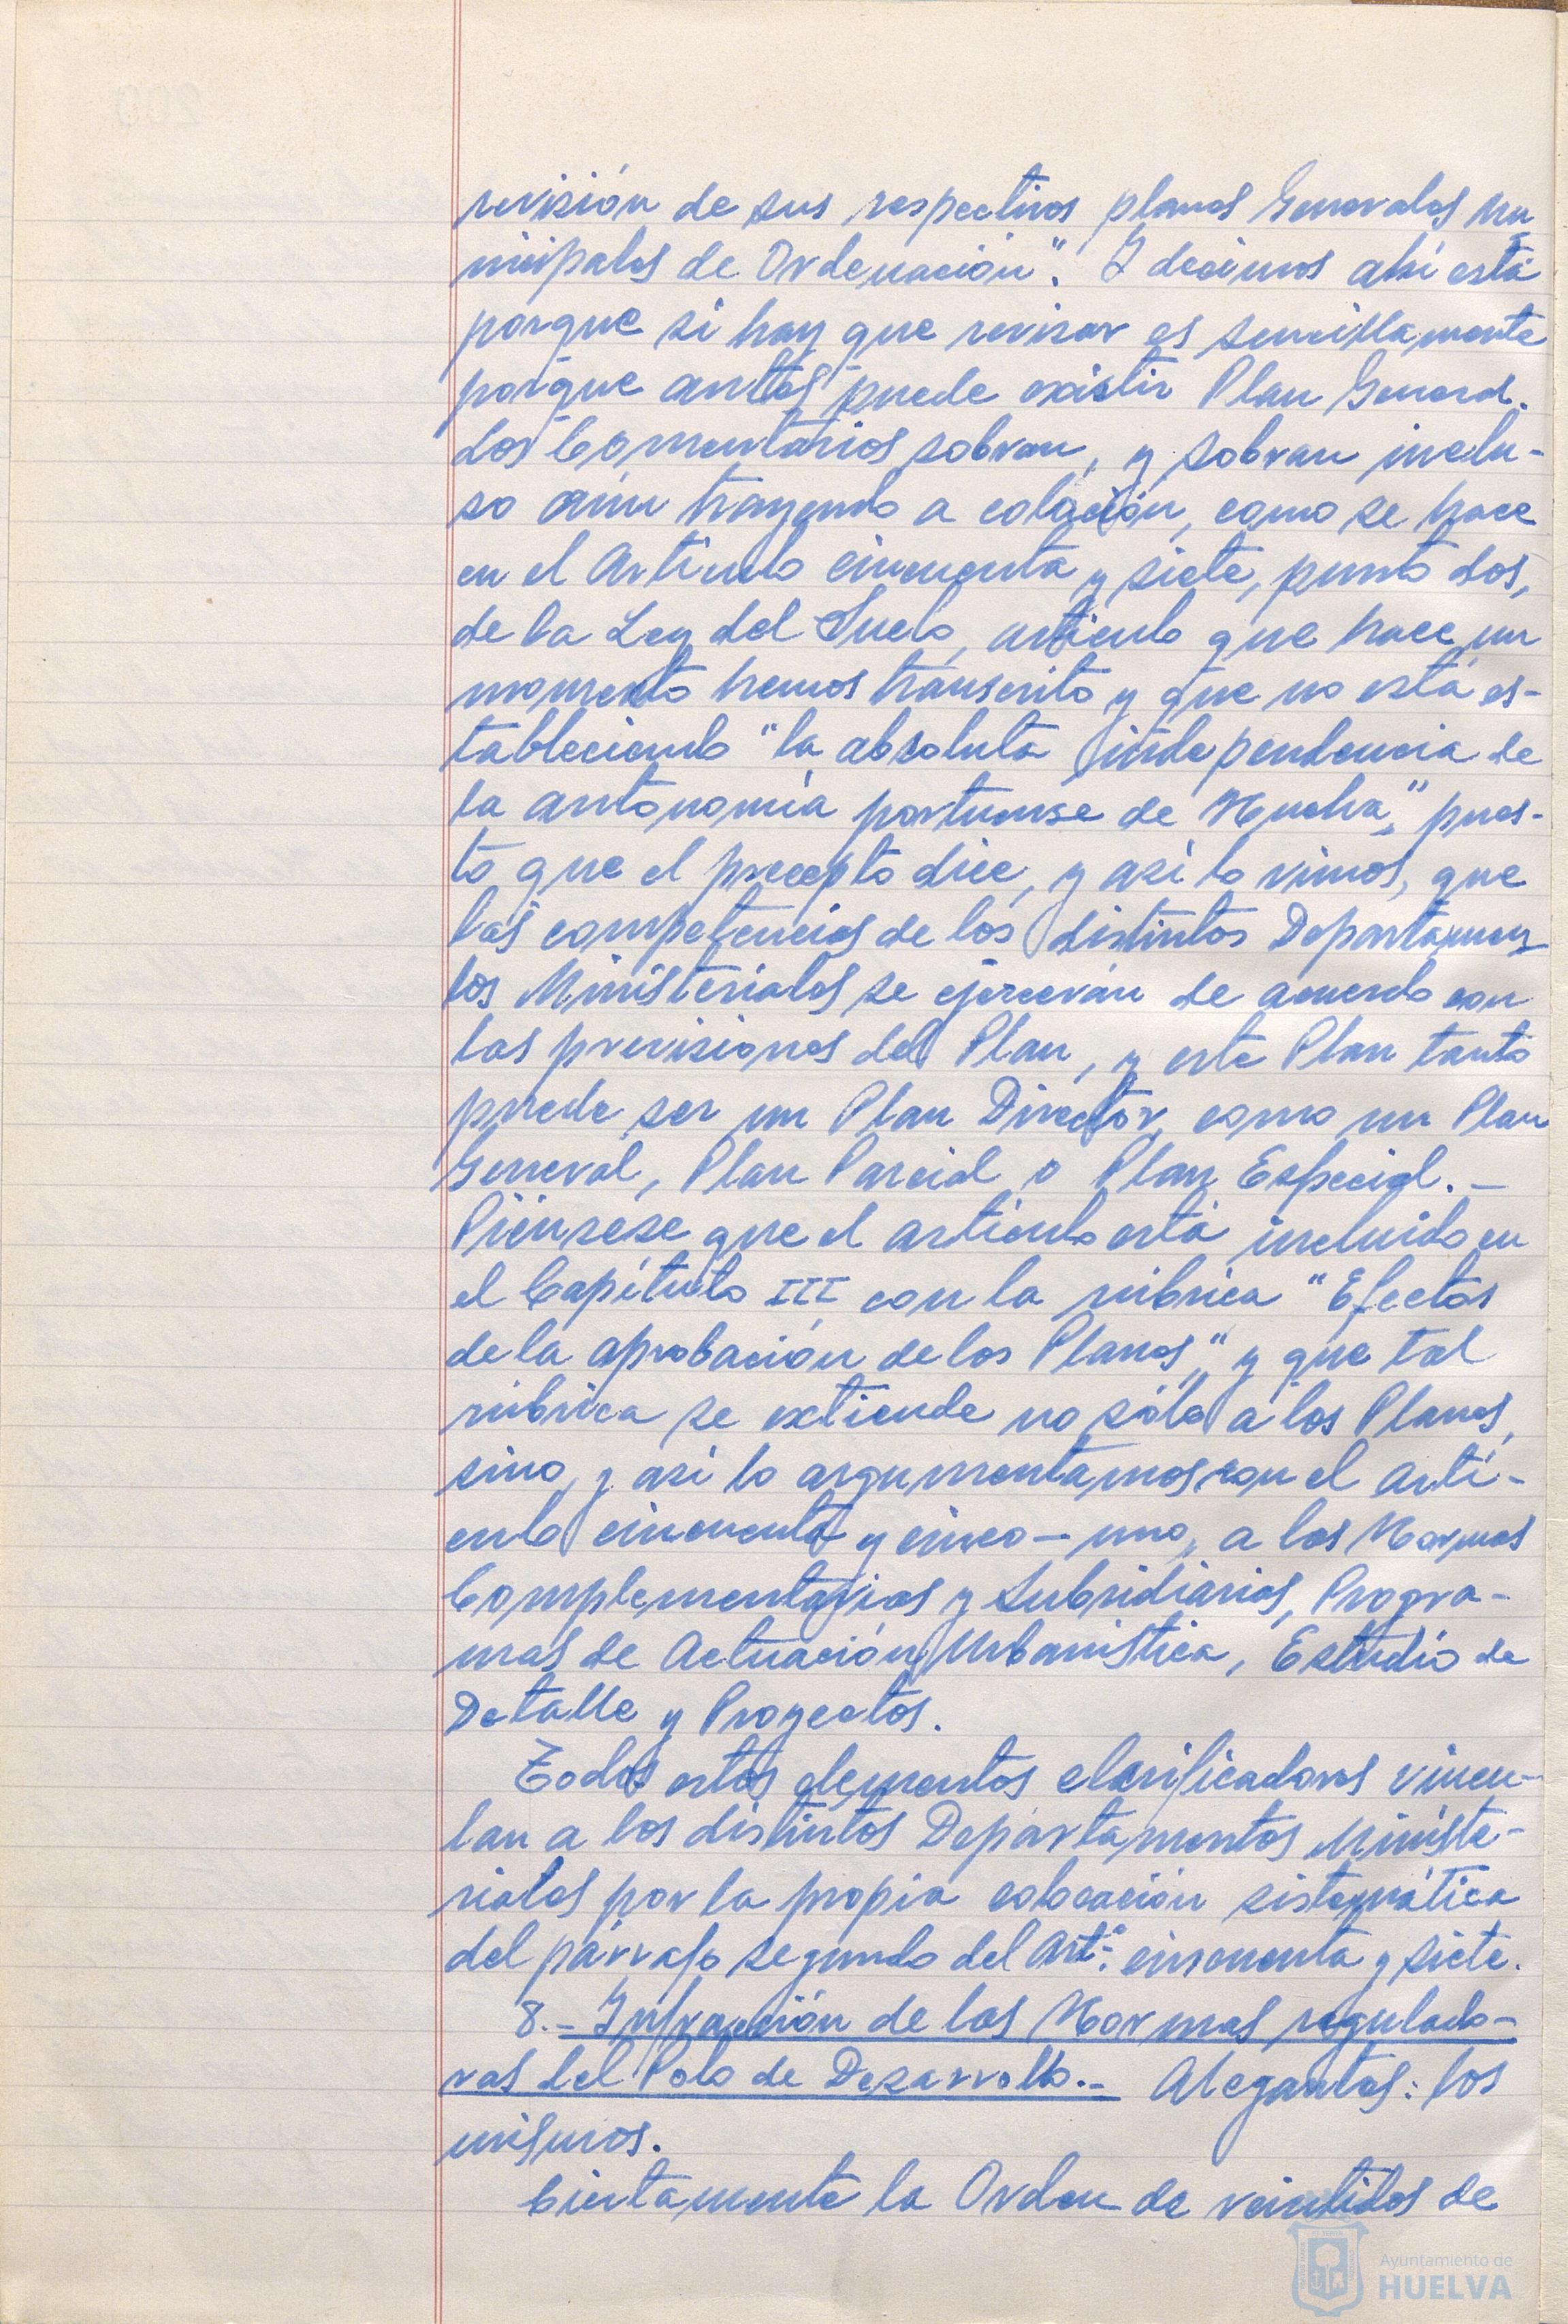 revisión de sus respectivos planes Generales Mu
nicipales de Ordenación". Y decimos ahí está
porque si hay que revisar es sencillamente
porque antes puede existir Plan General.
Los Comentarios sobran, y sobran inclu-
so aún trayendo a colación, como se hace
en el Artículo cincuenta y siete, punto dos,
de la Ley del Suelo, artículo que hace un
momento hemos transcrito y que no está es-
tableciendo "la absoluta independencia de
la autonomía portuense de Huelva", pues-
to que el precepto dice, y así lo vimos, que
las competencias de los distintos Departamen
tos Ministeriales se ejercerán de acuerdo con
las previsiones del Plan, y este Plan tanto
puede ser un Plan Director, como un Plan
General, Plan Parcial o Plan Especial.-
Piénsese que el artículo está incluido en
el Capítulo III, con la rúbrica "Efectos
de la aprobación de los Planes", y que tal
rúbrica se extiende no sólo a los Planes,
sino, y así lo argumentamos con el artí-
culo cincuenta y cinco - uno, a las Normas
Complementarias y Subsidiarias, Progra-
mas de Actuación Urbanística, Estudio de
Detalle y Proyectos.
Todos estos elementos clarificadores vincu-
lan a los distintos Departamentos Ministe-
riales por la propia colocación sistemática
del párrafo segundo del Artº. cincuenta y siete.
8.- Infracción de las Normas regulado-
ras del Polo de Desarrollo.- Alegantes: los
mismos.
Ciertamente la Orden de veintidos de
Ayuntamiento de
HUELVA